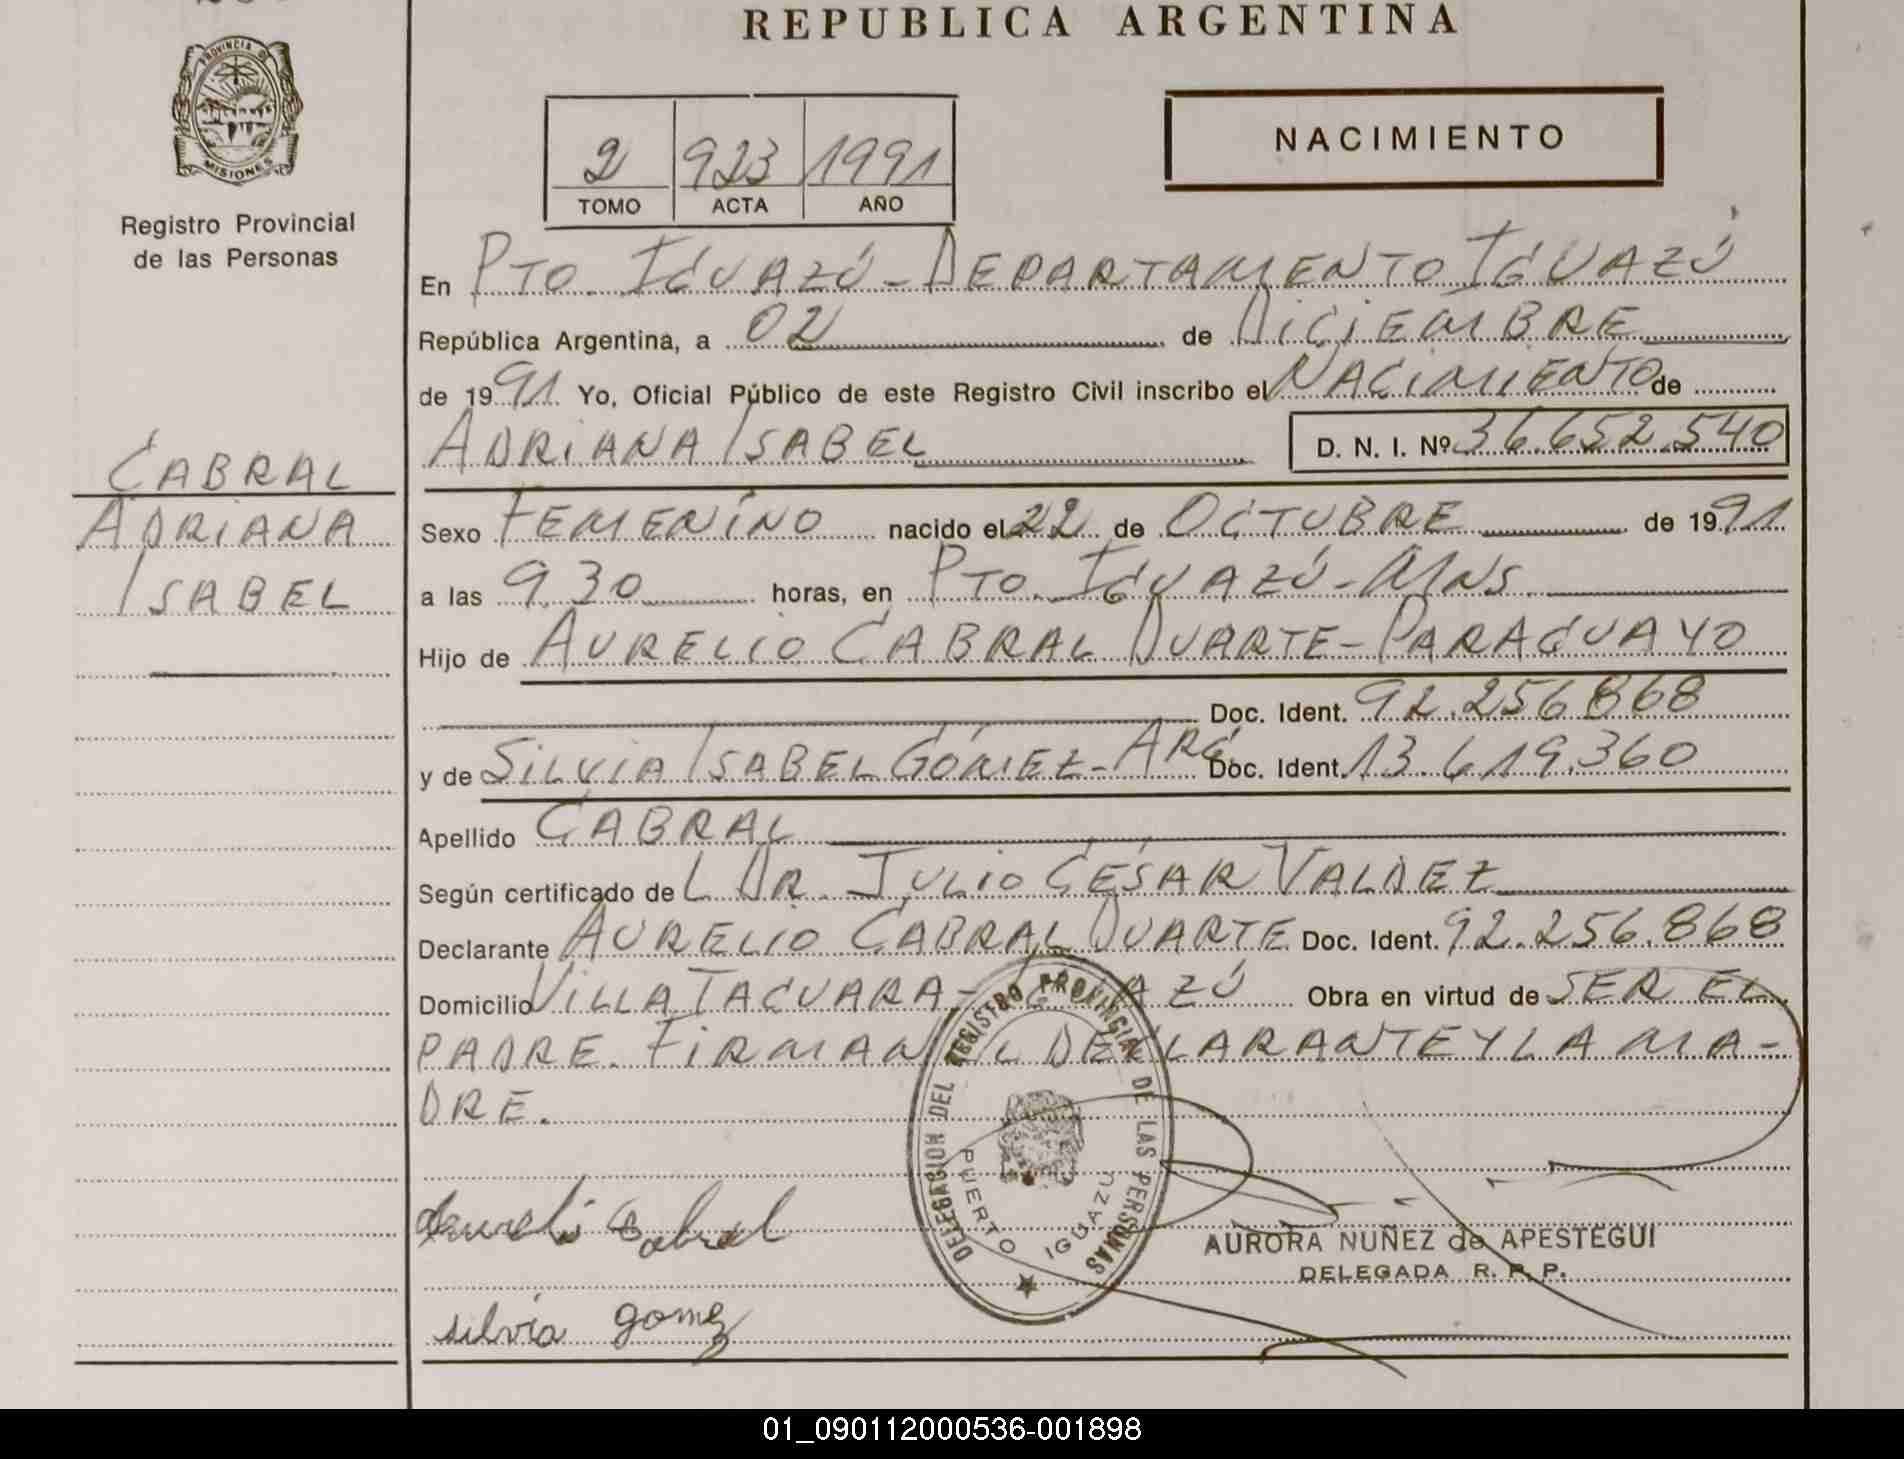 REPUBLICA ARGENTINA
PROVINCIA DE MISIONES
Registro Provincial
de las Personas
2 923 1991
TOMO ACTA AÑO
NACIMIENTO
En PTO. IGUAZÚ - DEPARTAMENTO IGUAZÚ
República Argentina, a 02 de DICIEMBRE
de 1991 Yo, Oficial Público de este Registro Civil inscribo el NACIMIENTO de
ADRIANA ISABEL D. N. I. Nº 36.652.540
CABRAL
ADRIANA
ISABEL
Sexo FEMENINO nacido el 22 de OCTUBRE de 1991
a las 9.30 horas, en PTO. IGUAZÚ - MNS.
Hijo de AURELIO CABRAL DUARTE - PARAGUAYO
Doc. Ident. 92.256.868
y de SILVIA ISABEL GÓMEZ - ARG. Doc. Ident. 13.619.360
Apellido CABRAL
Según certificado de L DR. JULIO CÉSAR VALDEZ
Declarante AURELIO CABRAL DUARTE Doc. Ident. 92.256.868
Domicilio VILLA TACUARA - IGUAZÚ Obra en virtud de SER EL
PADRE. FIRMAN EL DECLARANTE Y LA MA-
DRE.
DELEGACION DEL REGISTRO PROVINCIAL DE LAS PERSONAS
PUERTO IGUAZU
Aurelio Cabral
AURORA NUÑEZ de APESTEGUI
DELEGADA R. P. P.
silvia gomez
01_090112000536-001898